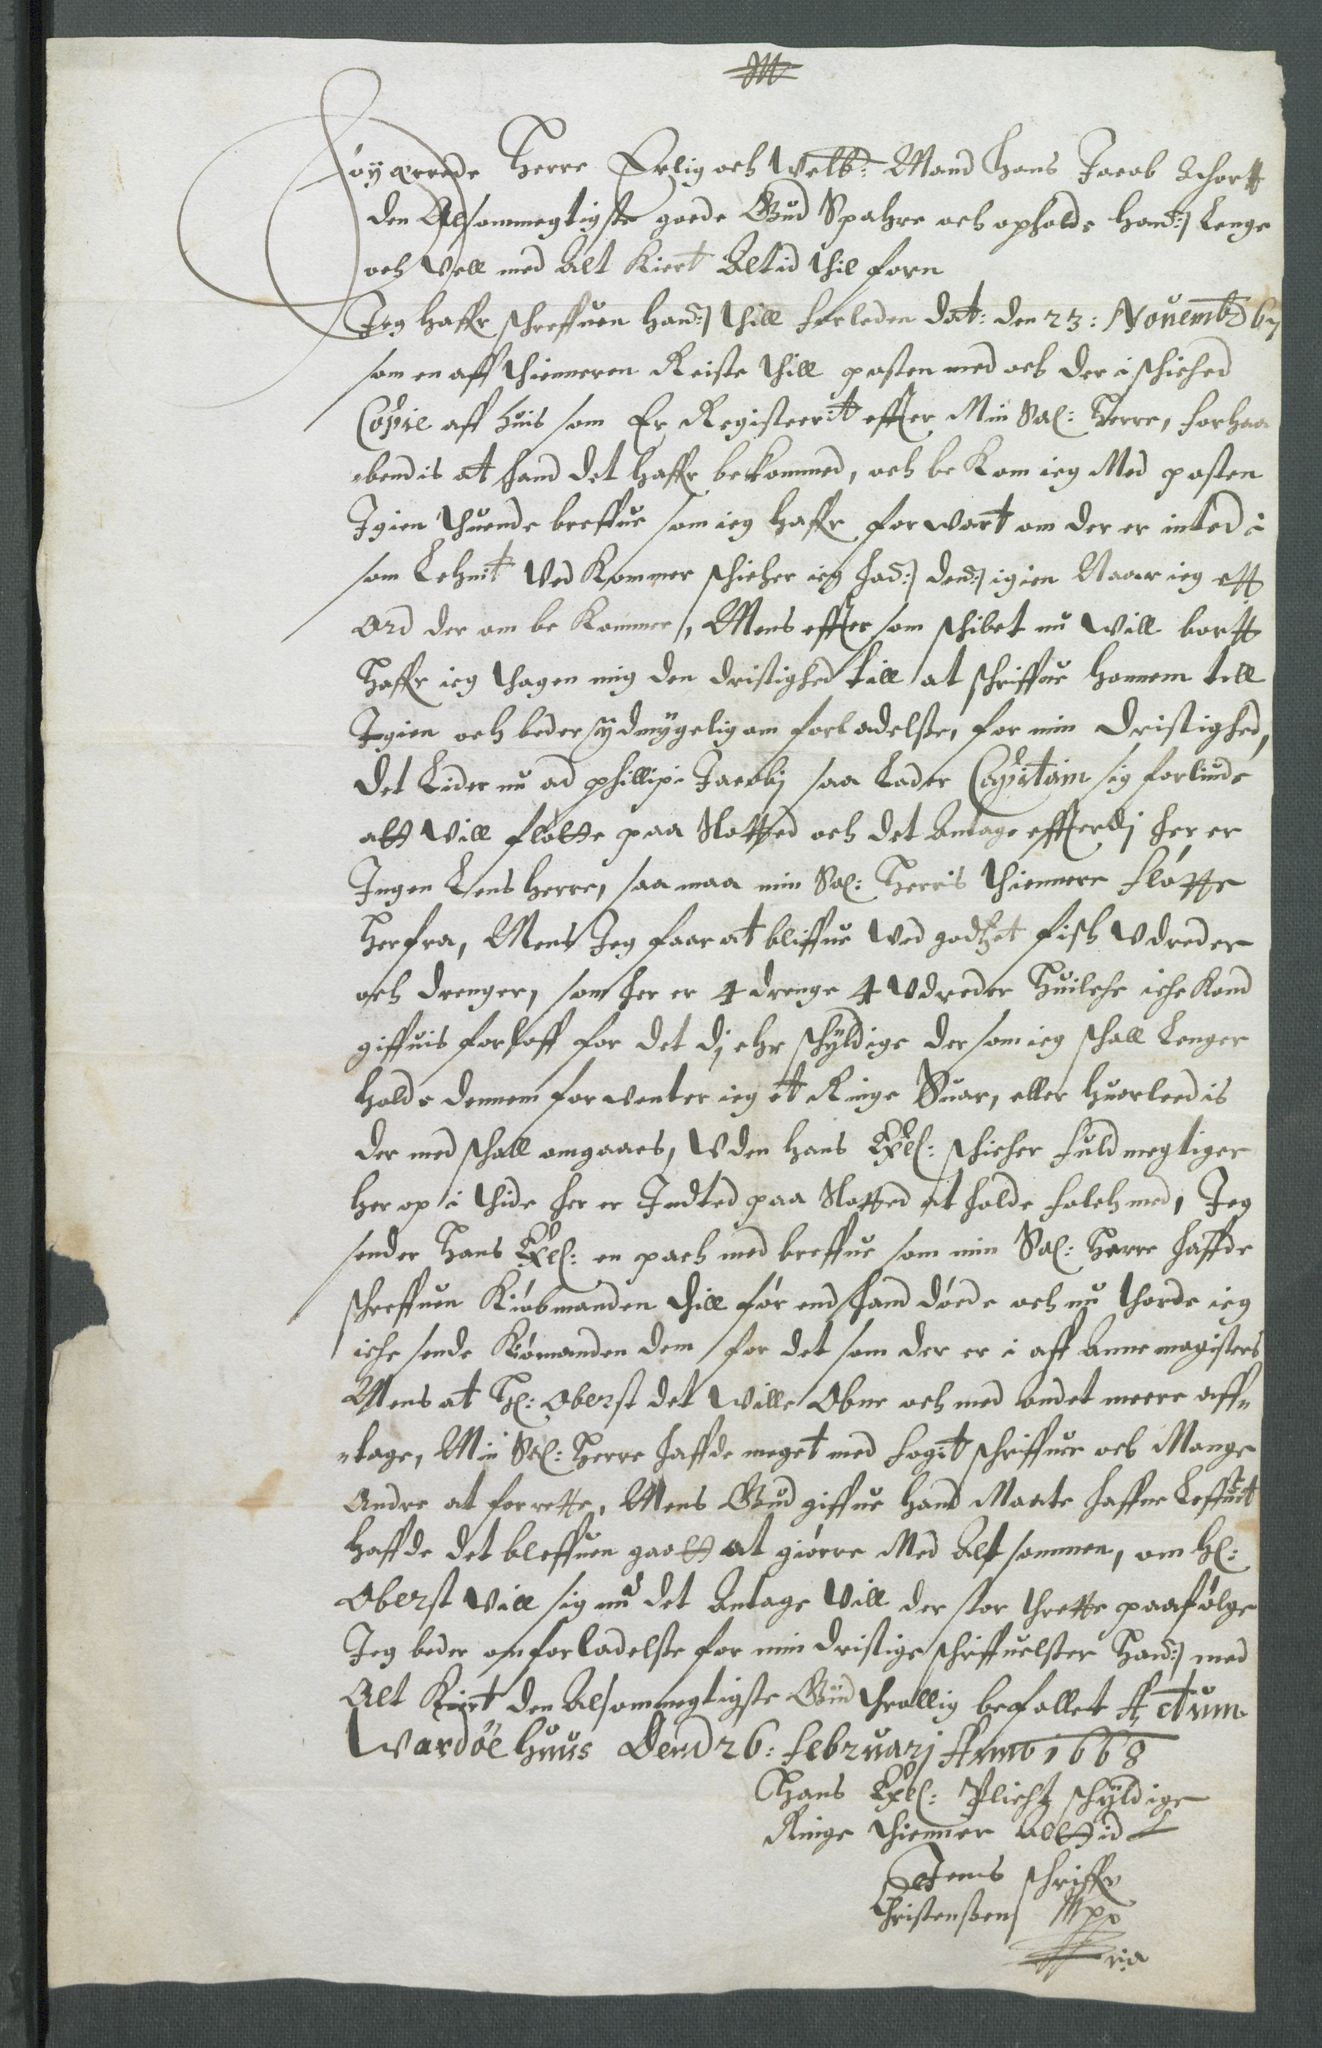 Høyærrede Herre Erlig och Welb: Mand Hans Jacob Schort
den Alsommegtigste goede Gud Spahre och opholde hand:/ Lenge
och Vell med Alt Kiert Altid thil forn
Jeg haffr schreffuen hand:/ thill forleden dat: den 23: Novemb 67
som en aff thienneren Reiste thill posten med och der i schiched
Copie aff huis som Er Registeerit effter Min Sal: Herre, forhaa
bendis at hand det haffr bekommed, och be Kom ieg Med posten
Igien thuende breffue som ieg haffr forwart om der er inted i
som Lehnit Ved Kommer schicher ieg had:/ dend:/ igien Naar ieg ett
ord der om be Kommer, Mens effter som schibet nu will bortt
Haffr ieg thagen mig den dristighed till at schriffue honnem till
Igien och beder ydmygelig om forladelse, for min dristighed,
det Lider nu ad phillipi Jacobj saa Lader Capitain sig forliude
att Vill fløtte paa Slotted och det Antage effterdj her er
Ingen Lens herre, saa maa min Sal: Herris thiennere fløtte
Herfra, Mens Jeg faar at bliffue Ved godtzet fisk Vdreder
och drenger, som her er 4 drenge 4 Vdreder Huilche iche Kand
giffuis forloff for det dj ehr schyldige der som ieg schall Lenger
holde dennem forwenter ieg et Ringe Suar, eller huorleedis
der med schall omgaaes, Vden hans Exel: schicher fuldmegtiger
her op i thide her er Indted paa Slotted at holde folch med, Jeg
sender Hans Exel: en pach med breffue som min Sal: Herre haffde
schreffuen Kiøbmanden thill før end hand døede och nu thorde ieg
iche sende Kiømanden dem for det som der er i aff Anne magisters
Mens at H: Oberst det wille Obne och med andet meere aff
tage, Min Sal: Herre haffde meget med fogit schriffuer och Mange
Andre at forrette, Mens Gud giffue hand Maate haffue Leffuet
haffde det bleffuen gaatt at giørre Med Alt sammen, om H:
Oberst Vill sig nu det Antage Vill der stor thrette paafølge
Jeg beder om forladelse for min dristige schriffuelser Hand:/ med
Alt Kiert den Alsommegtigste Gud throllig befallet Actum
Wardøe Huus Dend 26: Februarj Anno 1668
Hans Exel: Plicht schyldige
Ringe thienner altid
Jens schriffr
Christenßen Mpp
ria